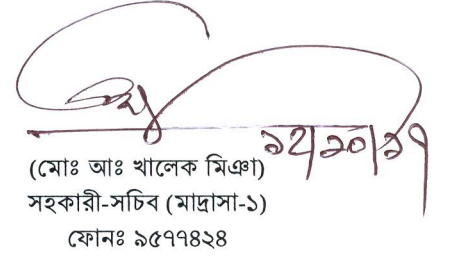 ১২/১০/১৭
(মোঃ আঃ খালেক মিঞা)
সহকারী-সচিব (মাদ্রাসা-১)
ফোনঃ ৯৫৭৭৪২৪